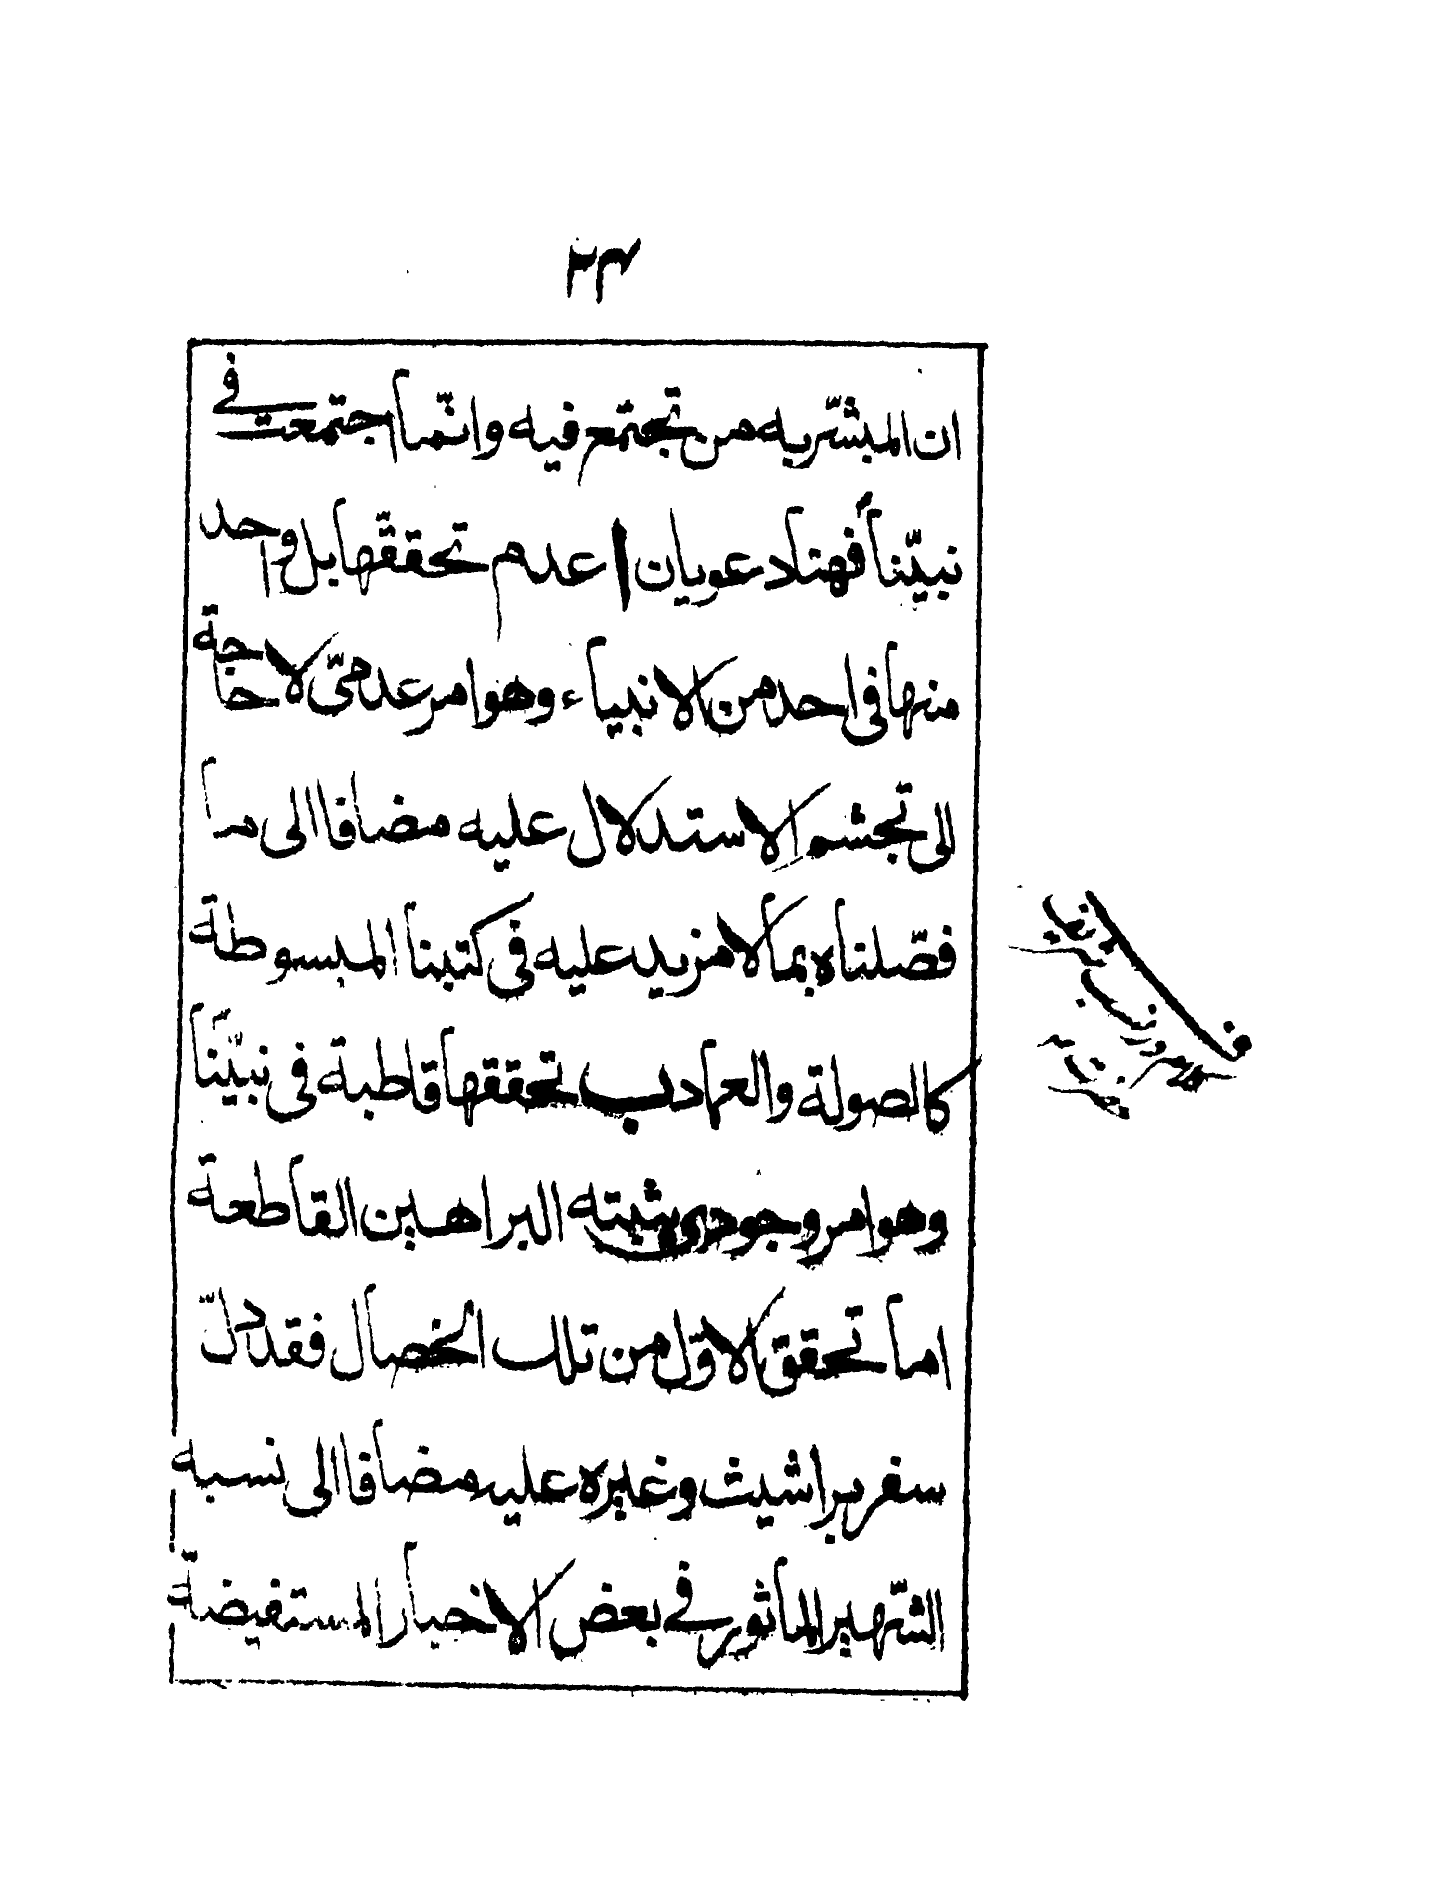 ٢٣
ان المبشر به من تجتمع فيه وانّما اجتمعت فى
نبيّنا فهنا دعويان ا عدم تحققّها بل واحد
منها فى احد من الانبياء وهو امر عدمىّ لا حاجة
الى تجشم الاستدلال عليه مضافا الى ما
فصّلناه بما لا مزيد عليه فى كتبنا المبسوطة
كالصولة والعما د ب تحققها قاطبة فى نبيّنا
وهو امر وجودى يثبته البراهين القاطعة
اما تحقق الاوّل من تلك الخصال فقد دلّ
سفر براشيث وغيره عليه مضافا الى نسبه
الشّهير المأثور فى بعض الاخبار المستفيضة